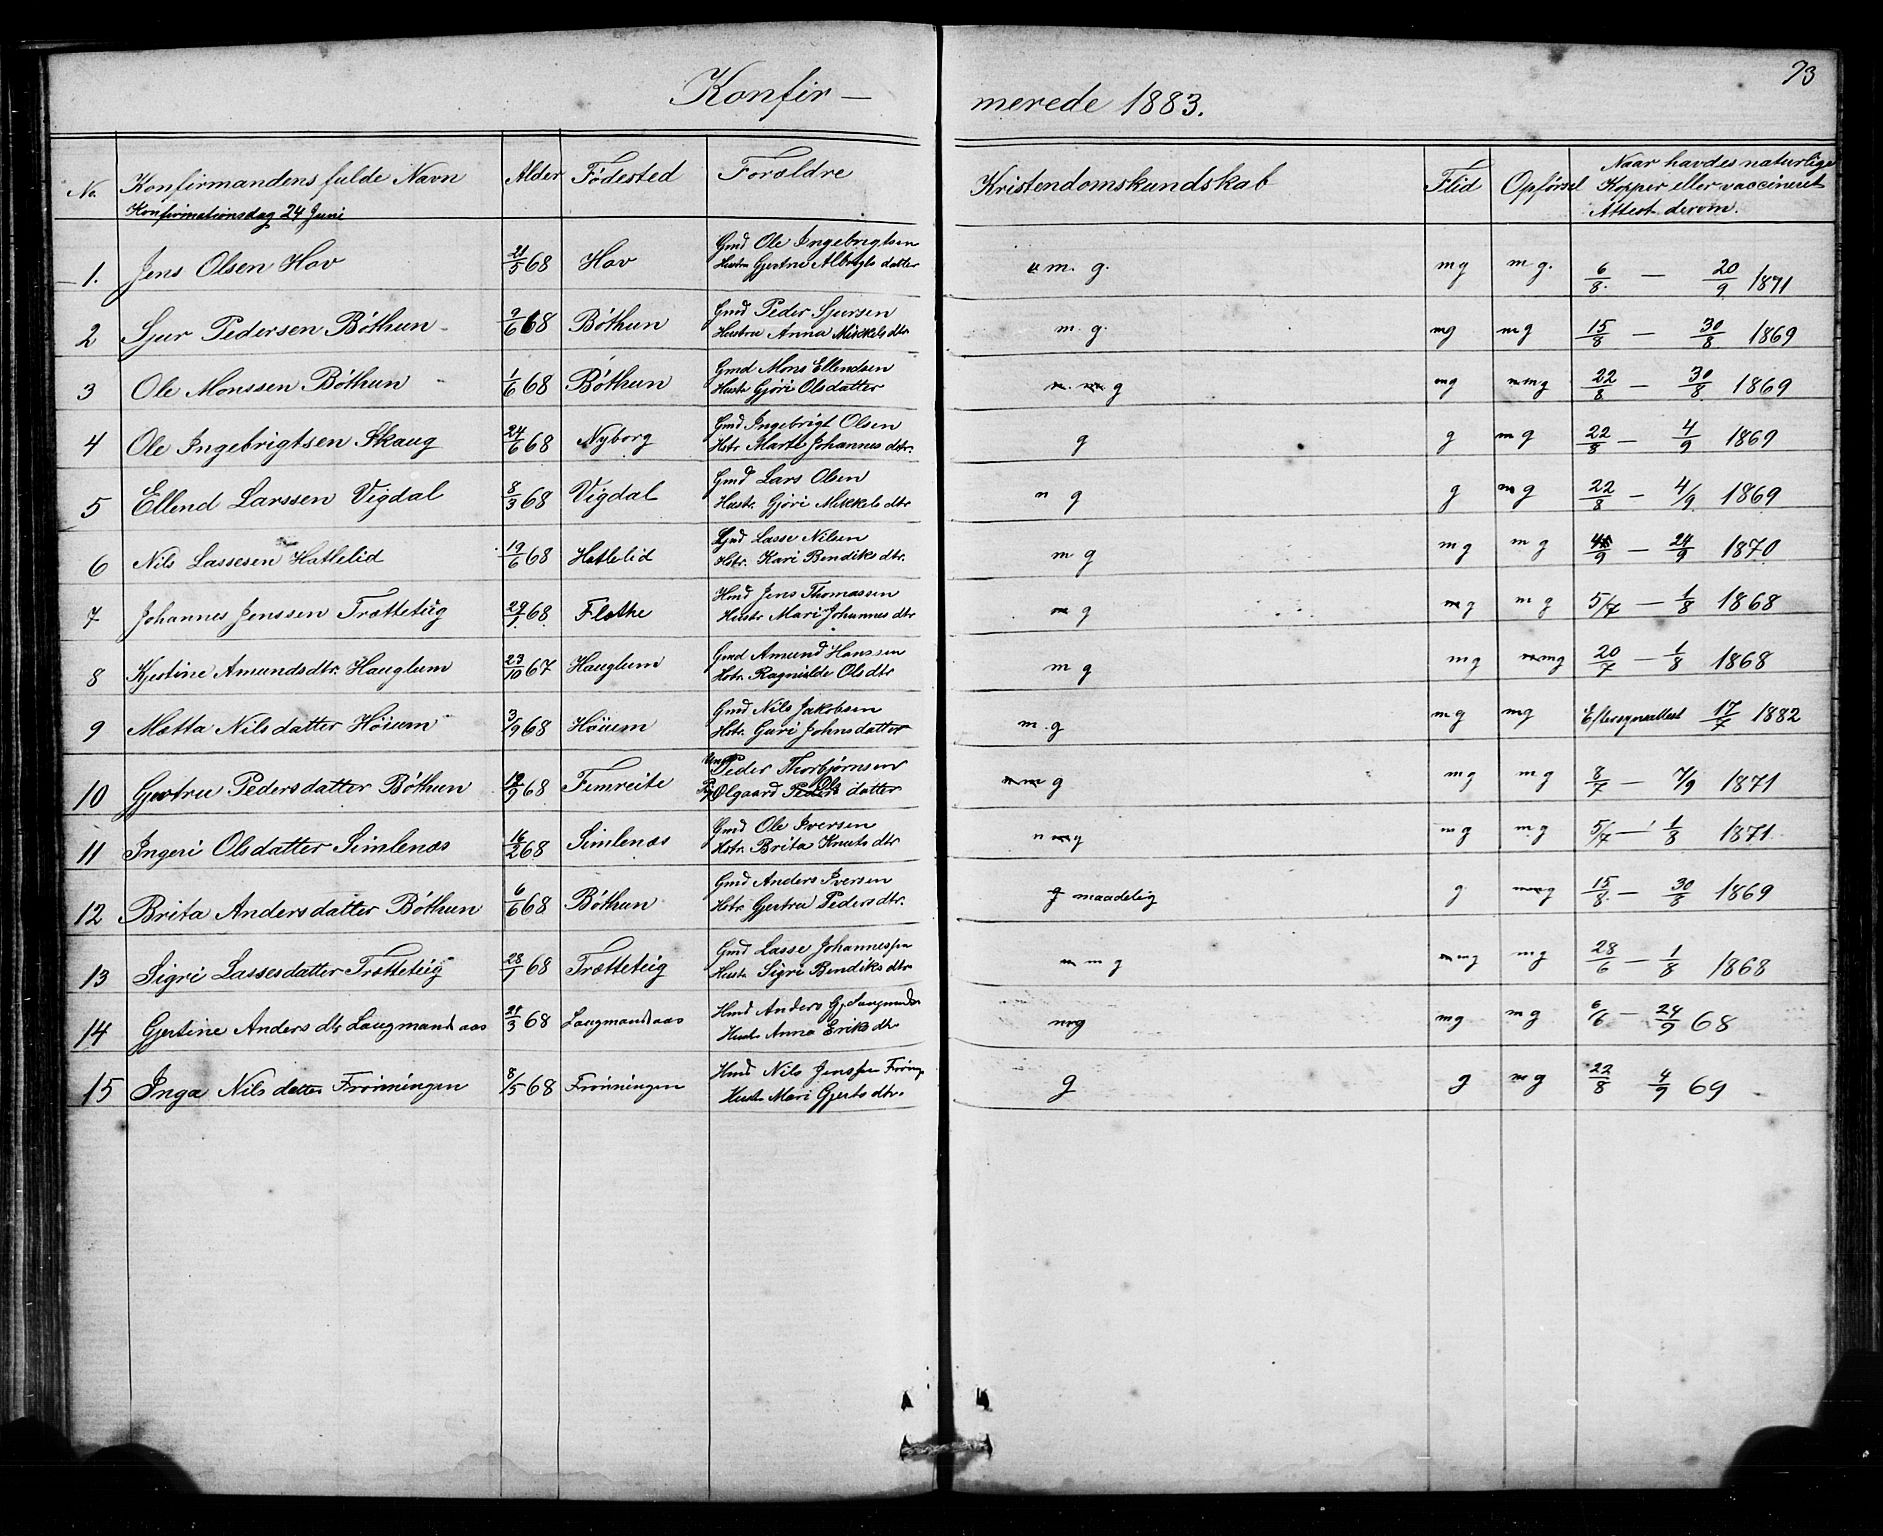 73
Konfir — merede 1883.
No. Konfirmandens fulde Navn Alder Fødested Forældre Kristendomskundskab Flid Opførsel Naar havdes naturlige Kopper eller vaccineret Attest derom.
Konfirmationsdag 24 Juni
1. Jens Olsen Hov 21/5 68 Hov Gmd Ole Ingebrigtsen m. g. mg m g. 6/8 — 20/9 1871
Hustru Gjertrue Albrigts datter
2 Sjur Pedersen Böthun 9/6 68 Böthun Gmd Peder Sjursen m. g. mg mg 15/8 — 30/8 1869
Hustru Anna Mikkels dtr
3 Ole Monssen Böthun 1/6 68 Böthun Gmd Mons Ellendsen g mg mg 22/8 — 30/8 1869
Hustr Gjöri Olsdatter
4 Ole Ingebrigtsen Skaug 24/6 68 Nyborg Gmd Ingebrigt Olsen g g mg 22/8 — 4/9 1869
Hstr Marte Johannes dtr.
5 Ellend Larssen Vigdal 8/3 68 Vigdal Gmd Lars Olsen g g mg 22/8 — 4/9 1869
Hustr. Gjöri Mikkels dtr
6 Nils Lassesen Hattelid 19/6 68 Hattelid Gmd Lasse Nilsen m g m g m g 4/9 — 24/9 1870
Hstr. Kari Bendiks dtr.
7 Johannes Jenssen Trætteteig 29/1 68 Flathe Hmd Jens Thomassen m g mg m g 5/7 — 1/8 1868
Hustr Mari Johannes dtr
8 Kjertine Amundsdtr. Hauglum 23/10 67 Hauglum Gmd Amund Hanssen m g mg mg 20/7 — 1/8 1868
Hstr. Ragnilde Ols dtr
9 Mætta Nils datter Höium 3/9 68 Höium Gmd Nils Jakobsen m. g mg mg Eftersynsattest 17/7 1882
Hstr. Guri Johnsdatter
10 Gjertru Pedersdatter Böthun 19/9 68 Fimreite Peder Thorbjørnsen g mg m g 8/7 — 7/9 1871
Olgaard Ols datter
11 Ingeri Olsdatter Simlenæs 16/2 68 Simlenæs Gmd Ole Iversen mg mg mg 5/7 — 1/8 1871
Hstr. Brita Knuts dtr
12 Brita Andersdatter Böthun 6/6 68 Böthun Gmd Anders Iversen maadelig g mg 15/8 — 30/8 1869
Hstr Gjertru Peders dtr.
13 Sigri Lassesdatter Trætteteig 28/1 68 Trætteteig Gmd Lasse Johannessen m g mg mg 28/6 — 1/8 1868
Hustr Sigri Bendiks dtr
14 Gjertine Anders dtr Laugmandsaas 21/3 68 Laugmandsaas Hmd Anders Gj. Laugmands mg mg m g 6/6 — 24/9 68
Hustr Anna Eriks dtr
15 Inga Nils datter Frönningen 8/5 68 Frönningen Hmd Nils Jenssen Fröning g g mg 22/8 4/9 69
Hustr Mari Gjerts dtr.